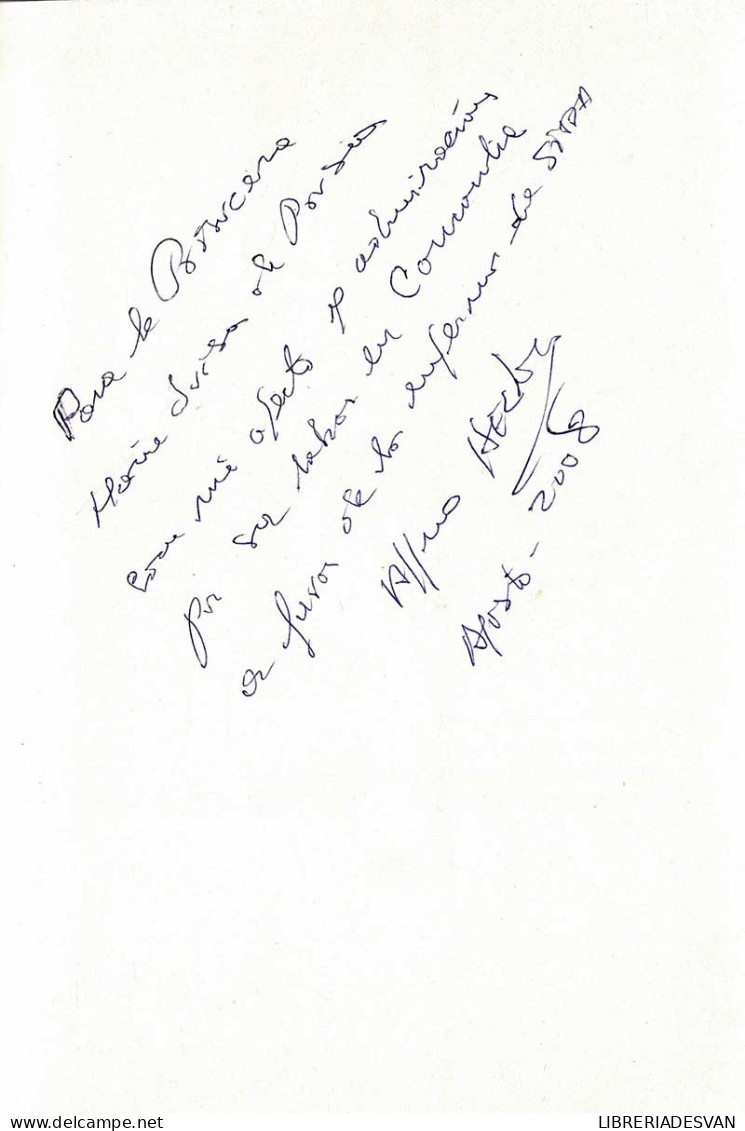 Para la Princesa
María Luisa de Prusia
con mi afecto y admiración
por su labor en Comontia
a favor de los enfermos de SIDA
Alfonso
Agosto - 2008
LIBRERIADESVAN